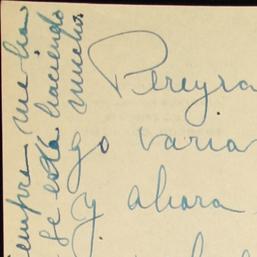 Pereyra
go varia
y ahora
empre me ha
se está haciendo
mucho.